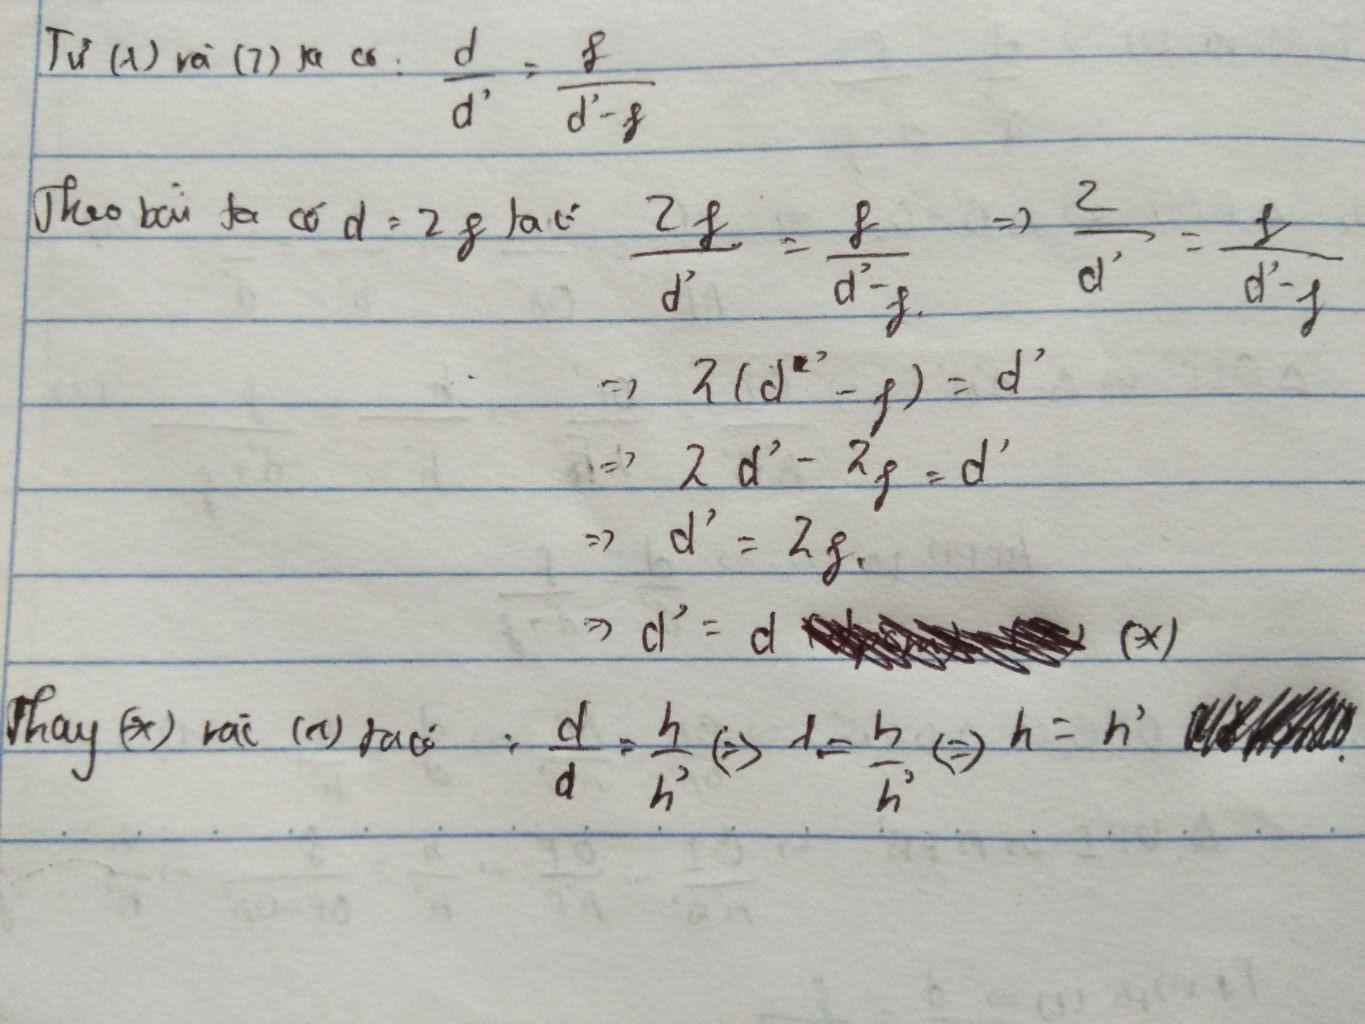 Từ (1) và (2) ta có: d/d' = f/(d'-f)
Theo bài ta có d = 2f ta có 2f/d' = f/(d'-f) => 2/d' = f/(d'-f)
=> 2(d' - f) = d'
=> 2d' - 2f = d'
=> d' = 2f.
=> d' = d (*)
Thay (*) vào (1) ta có : d/d = h/h' (=> 1 = h/h' (=> h = h'